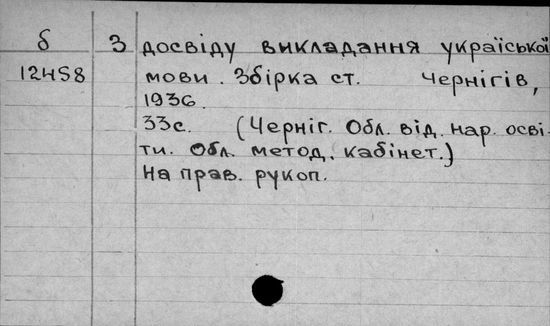 б З досвіду викладання україської
12458 мови. Збірка ст. Чернігів,
1936.
33с. (Черніг. Обл. від. нар. осві-
ти. Обл. метод. кабінет.)
На прав. рукоп.